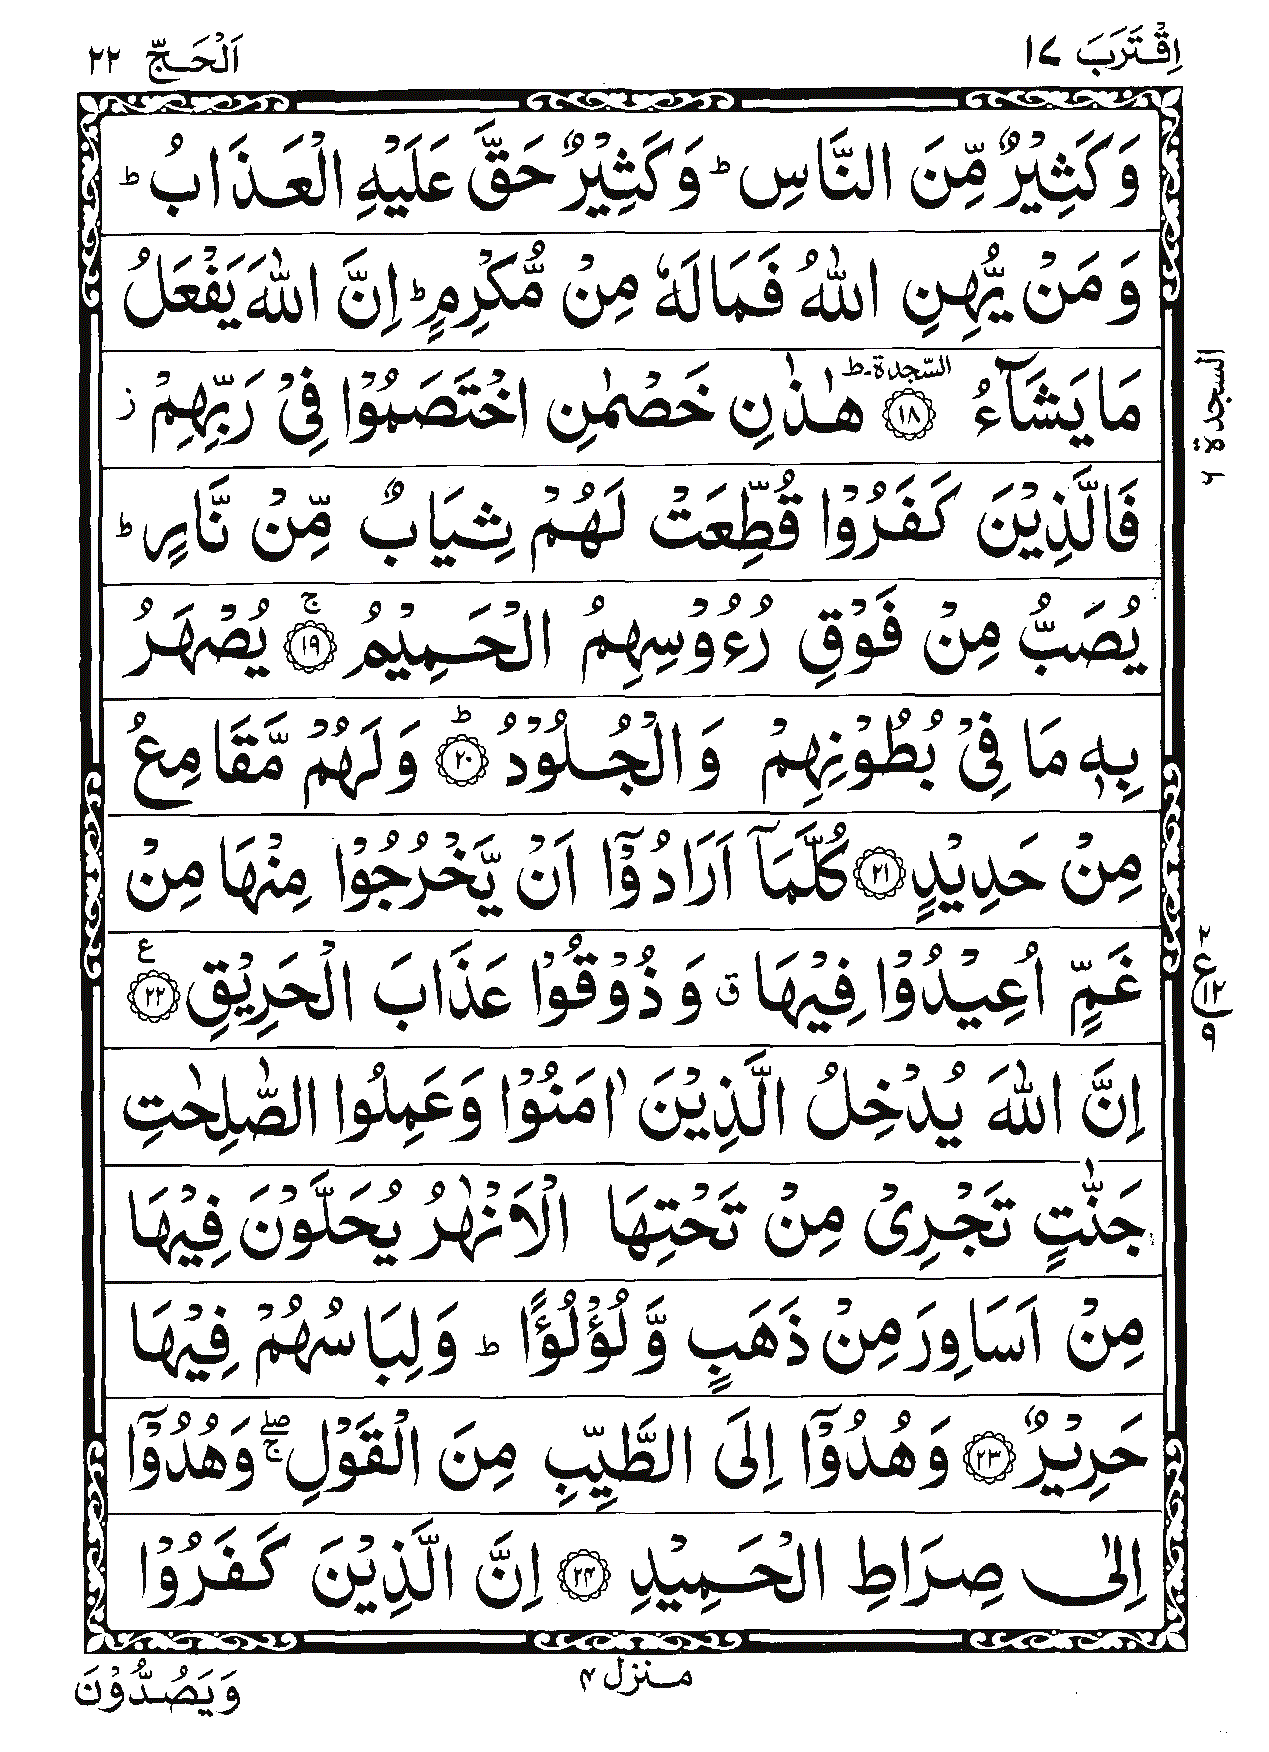 اِقْتَرَبَ ۱۷
اَلْحَجّ ۲۲
وَكَثِيْرٌ مِّنَ النَّاسِ ؕ وَكَثِيْرٌ حَقَّ عَلَيْهِ الْعَذَابُ ؕ
وَمَنْ يُّهِنِ اللّٰهُ فَمَا لَهٗ مِنْ مُّكْرِمٍ ؕ اِنَّ اللّٰهَ يَفْعَلُ
مَا يَشَآءُ ۱۸ السّجدة ؕ هٰذٰنِ خَصْمٰنِ اخْتَصَمُوْا فِيْ رَبِّهِمْ ز
فَالَّذِيْنَ كَفَرُوْا قُطِّعَتْ لَهُمْ ثِيَابٌ مِّنْ نَّارٍ ؕ
يُصَبُّ مِنْ فَوْقِ رُءُوْسِهِمُ الْحَمِيْمُ ۚ ۱۹ يُصْهَرُ
بِهٖ مَا فِيْ بُطُوْنِهِمْ وَالْجُلُوْدُ ؕ ۲۰ وَلَهُمْ مَّقَامِعُ
مِنْ حَدِيْدٍ ۲۱ كُلَّمَاۤ اَرَادُوْۤا اَنْ يَّخْرُجُوْا مِنْهَا مِنْ
غَمٍّ اُعِيْدُوْا فِيْهَا ق وَذُوْقُوْا عَذَابَ الْحَرِيْقِ ۲۲ ع
اِنَّ اللّٰهَ يُدْخِلُ الَّذِيْنَ اٰمَنُوْا وَعَمِلُوا الصّٰلِحٰتِ
جَنّٰتٍ تَجْرِيْ مِنْ تَحْتِهَا الْاَنْهٰرُ يُحَلَّوْنَ فِيْهَا
مِنْ اَسَاوِرَ مِنْ ذَهَبٍ وَّلُؤْلُؤًا ؕ وَلِبَاسُهُمْ فِيْهَا
حَرِيْرٌ ۲۳ وَهُدُوْۤا اِلَى الطَّيِّبِ مِنَ الْقَوْلِ ۖۚ وَهُدُوْۤا
اِلٰى صِرَاطِ الْحَمِيْدِ ۲۴ اِنَّ الَّذِيْنَ كَفَرُوْا
السجدة ۶
۲ ع ۱۲ ۹
منزل ۴
وَيَصُدُّوْنَ